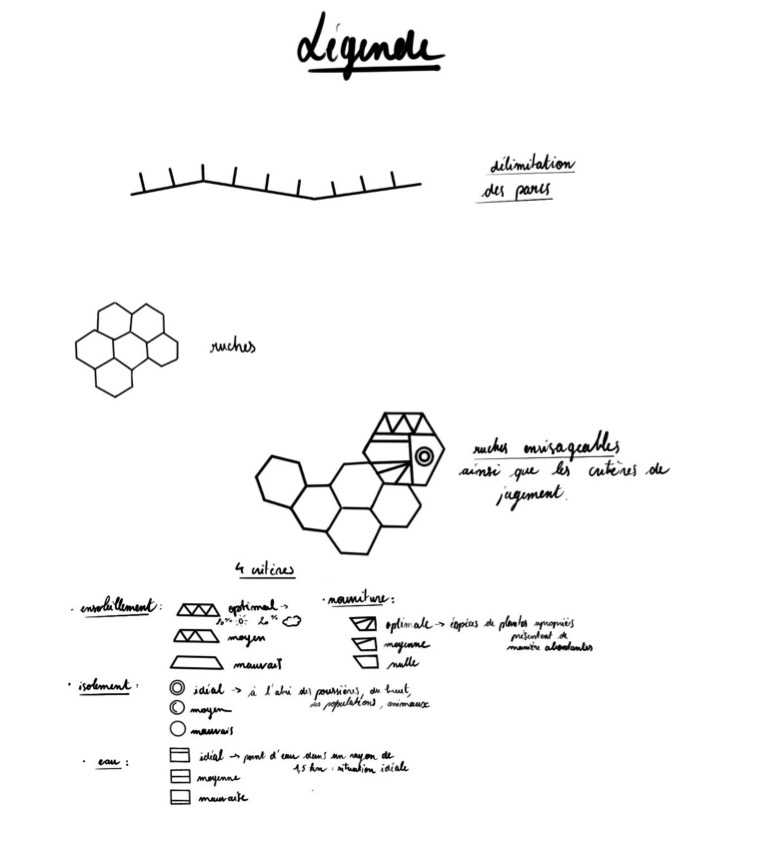 Légende
délimitation
des parcs
ruches
ruches envisageables
ainsi que les critères de
jugement.
4 critères
· ensoleillement :
optimal →
moyen
mauvais
· isolement :
idéal → à l'abri des poussières, du bruit,
des populations, animaux
moyen
mauvais
· eau :
idéal → point d'eau dans un rayon de
1,5 km : situation idéale
moyenne
mauvaise
· nourriture :
optimale → espèces de plantes appropriés
présentent de
manière abondantes
moyenne
nulle